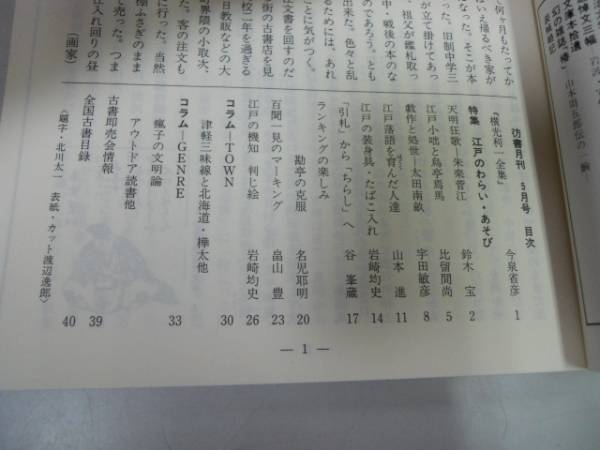 彷書月刊 5月号 目次
『横光利一全集』 今泉省彦 1
特集 江戸のわらい・あそび
天明狂歌―朱楽菅江 鈴木 宝 2
江戸小咄と烏亭焉馬 比留間尚 5
戯作と処世―太田南畝 宇田敏彦 8
江戸落語を育んだ人達 山本 進 11
江戸の装身具・たばこ入れ 岩崎均史 14
「引札」から「ちらし」へ 谷 峯蔵 17
ランキングの楽しみ
勘亭の克服 名児耶明 20
百聞一見のマーキング 畠山 豊 23
江戸の機知 判じ絵 岩崎均史 26
コラム―TOWN 30
津軽三味線と北海道・樺太他
コラム―GENRE 33
瘋子の文明論
アウトドア読書他
古書即売会情報 39
全国古書目録 40
〈題字・北川太一 表紙・カット渡辺逸郎〉
何ヶ月もたってか
いえ帰るべき家が
なった。そこが本
った。旧制中学三
が立て掛けてあっ
、祖父が鑑札取っ
のであろう。とも
中・戦後の本のな
出来た。色々と乱
るためには、あれ
ことに気がつく。
注文書を回すのだ
街の古書店を見
校二年を過ぎる
日教販などの大
町界隈の小取次、
た。客の注文も
に行った。当然
棚ふさぎのまま
て売った。つま
仕入れ回りの昼
（画家）
― 1 ―